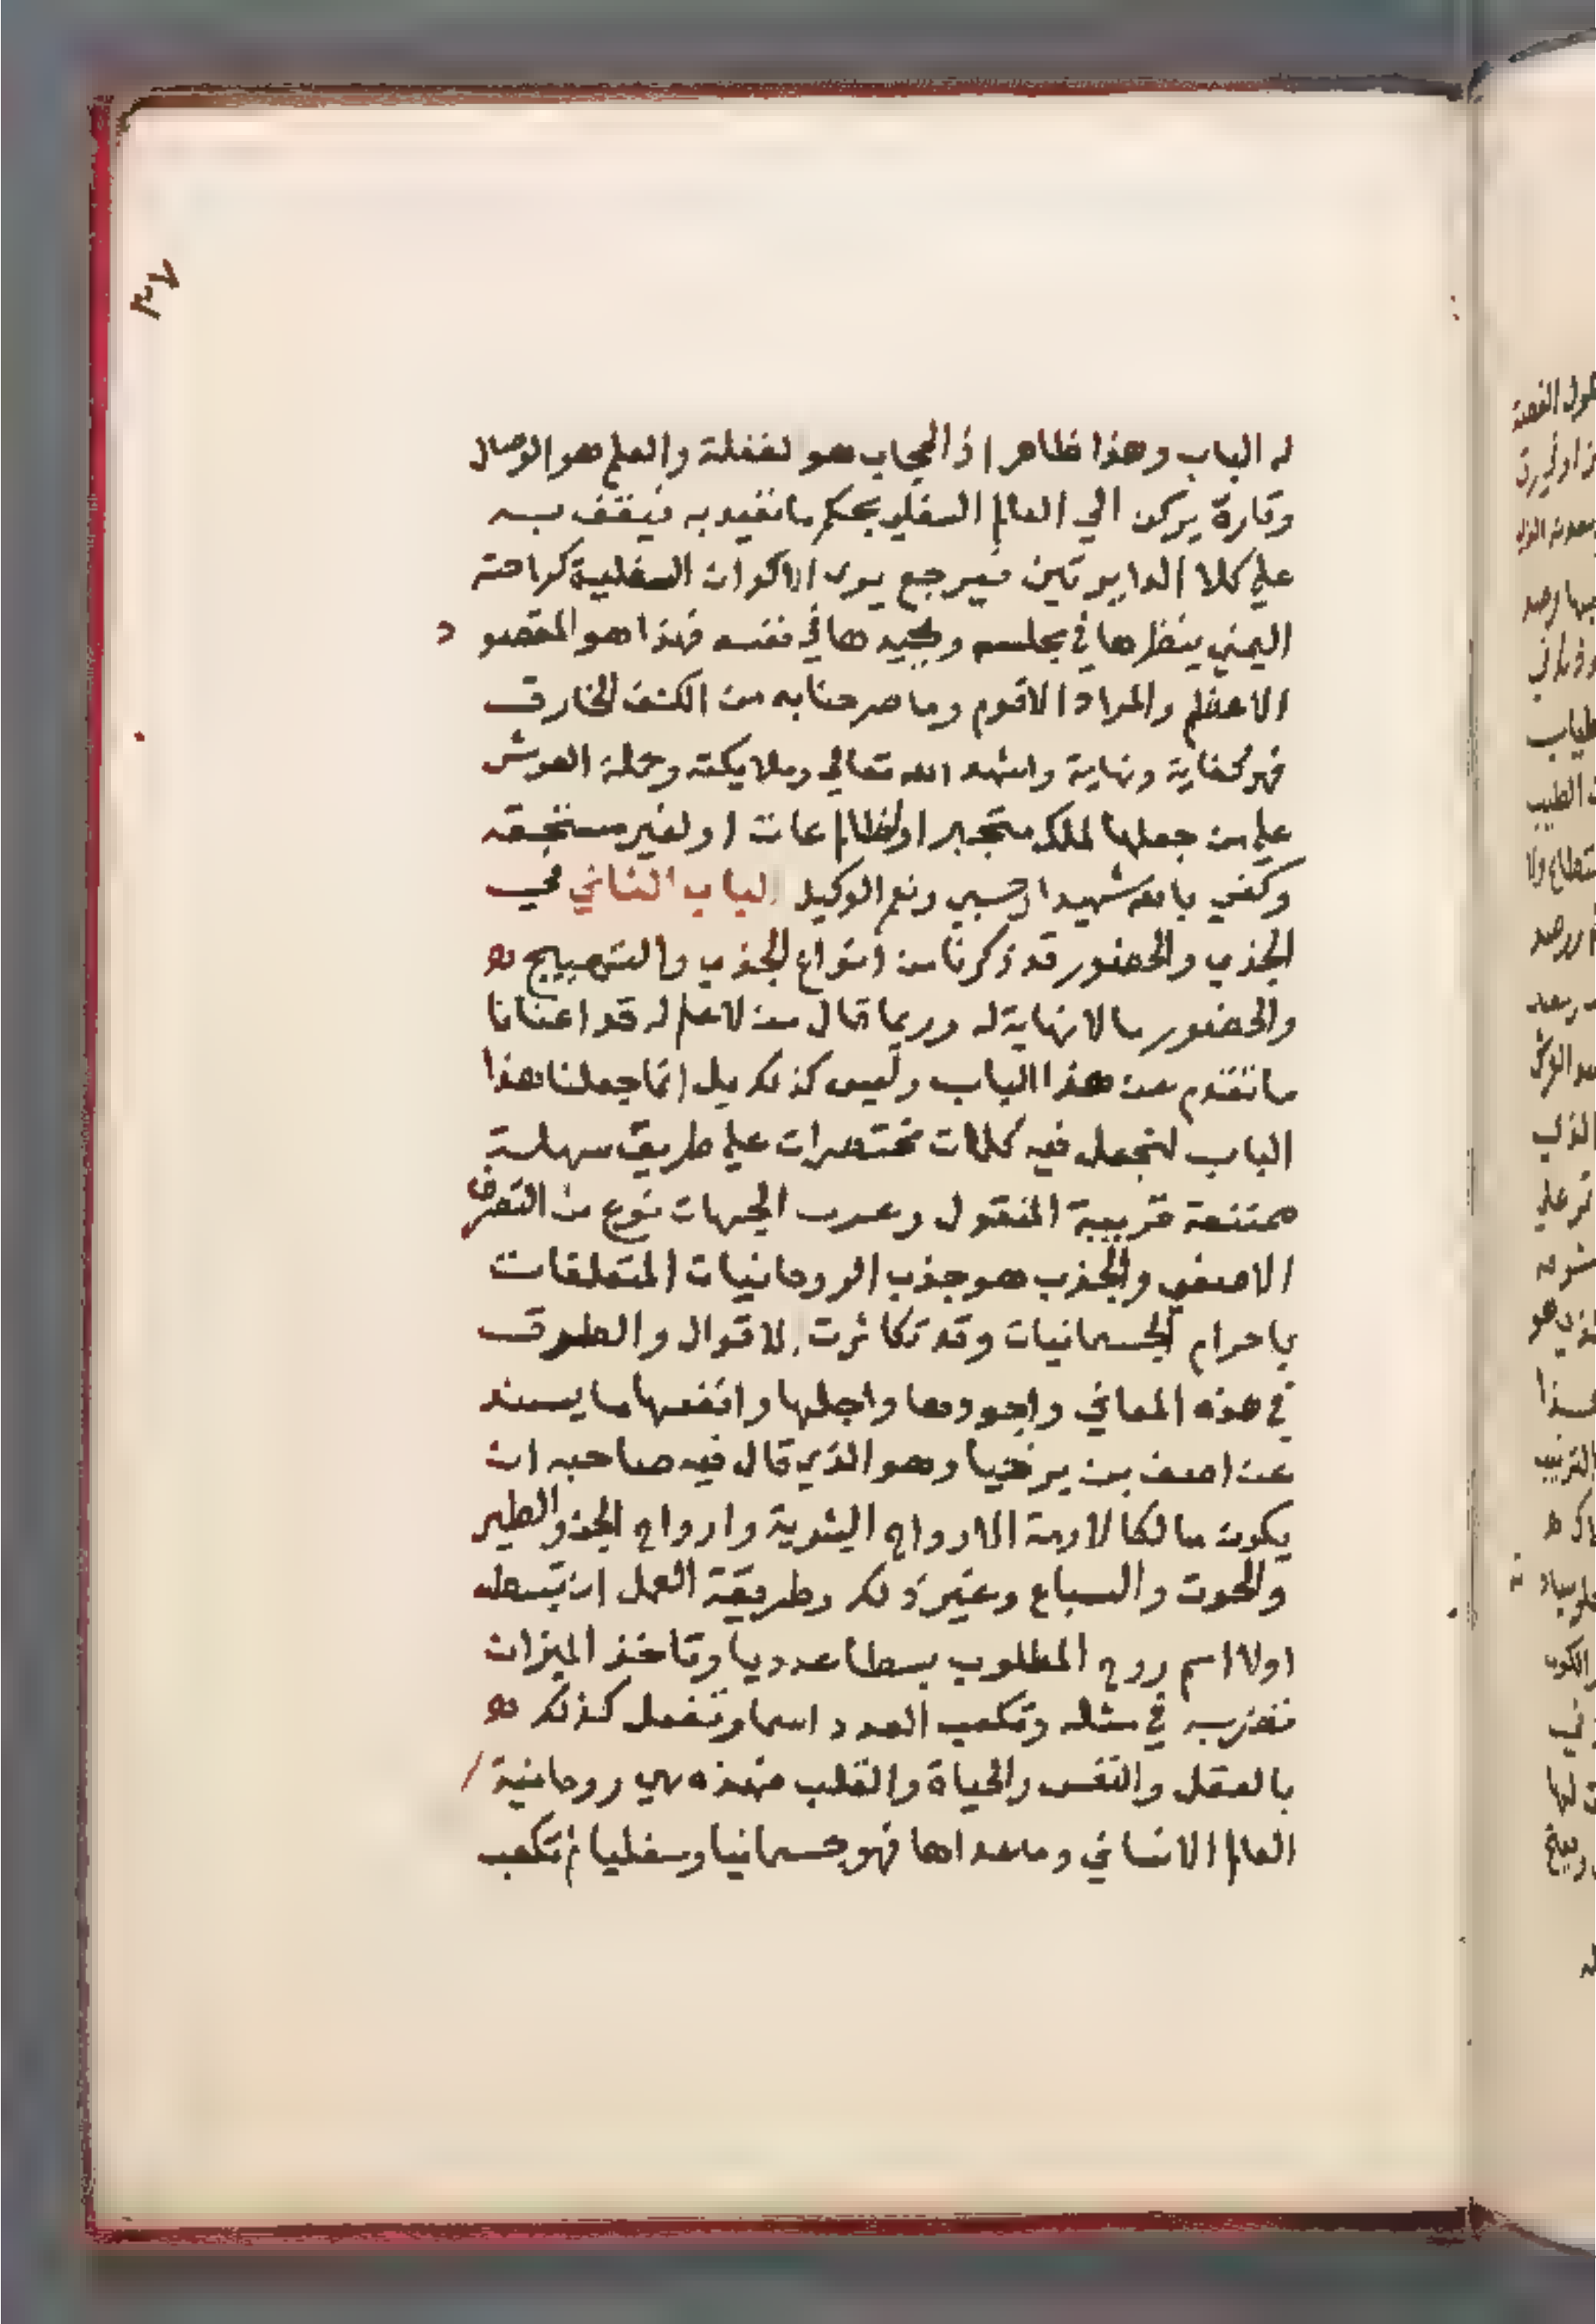 ٣٧
له الباب وهذا ظاهر اذ الحجاب هو لغفلة والعلم هو الوصال
وتارة يركن الي العالم السفلي بحكم ما تقيد به فيقف به
علي كلا الدايرتين فيرجع يرى الاكوان السفلية كراحته
اليمني ينظرها في مجلسه ويجيدها في نفسه فهذا هو المقصو د
الاعظم والمراد الاقوم وما صرحنا به من الكشف الخارق
فهو كفاية ونهاية واشهد الله تعالي وملايكته وحملة العرش
علي من جعلها لملك متجبر او لظالم عات او لغير مستحقه
وكفي بالله شهيدا وحسبي ونعم الوكيل الباب الثاني في
الجذب والحضور قد ذكرنا من انواع الجذب والتهييج
والحضور ما لا نهاية له وربما قال من لا علم له قد اغنانا
ما تقدم عن هذا الباب وليس كذلك بل انما جعلنا هذا
الباب لنجعل فيه كلمات مختصرات علي طريق سهلة
ممتنعة قريبة المنقول وعرب الجهات نوع من التصرف
الاصفي والجذب هو جذب الروحانيات المتعلقات
باجرام الجسمانيات وقد تكاثرت الاقوال والطرق
في هذه المعاني واجودها واجلها وانفعها ما يسند
عن اصف بن برخيا وهو الذي قال فيه صاحبه ان
يكون مالكا لازمة الارواح البشرية وارواح الجن والطير
والحوت والسباع وغير ذلك وطريقة العمل ان تبسط
اولا اسم روح المطلوب بسطا عدديا وتاخذ الميزان
تضربه في مثله وتكعب العدد اسما وتفعل كذلك
بالعقل والنفس والحياة والقلب فهذه هي روحانية
العالم الانساني وما عداها فهو جسمانيا وسفليا ثم تكعب